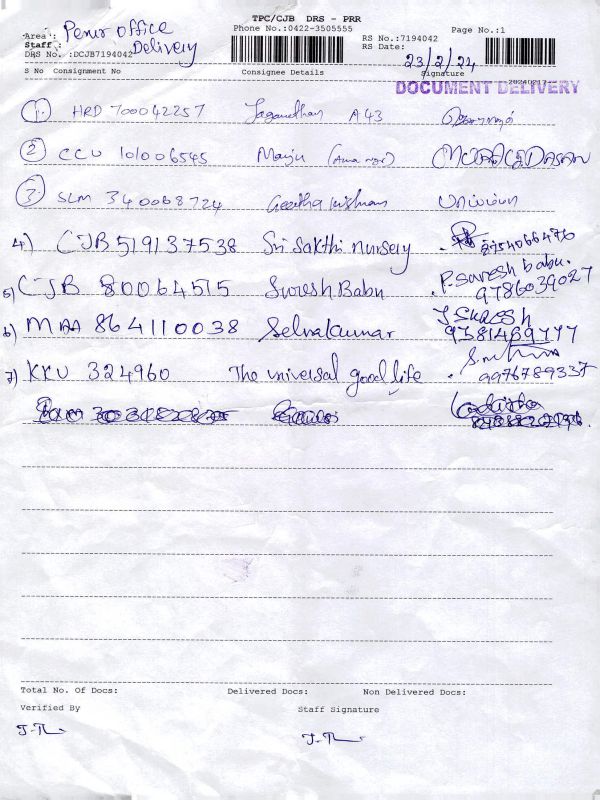 TPC/CJB DRS - PRR
Area : Perur office Phone No.:0422-3505555 RS No.:7194042 Page No.:1
Staff : Delivery RS Date:
DRS No.:DCJB7194042 23/2/24
S No Consignment No Consignee Details Signature 20240217
DOCUMENT DELIVERY
1. HRD 700042257 Jaganathan A43
2 CCU 101006545 Manju
3 SLM 340068724 Geetha krishnan
4) CJB 519137538 Sri Sakthi nursery 8754066476
5) CJB 80064515 Suresh Babu P. Suresh babu.
9786039027
6) MAA 864110038 Selvakumar J. SURESH
9381489777
7) KKU 324960 The universal good life
9976789337
Total No. Of Docs: Delivered Docs: Non Delivered Docs:
Verified By Staff Signature